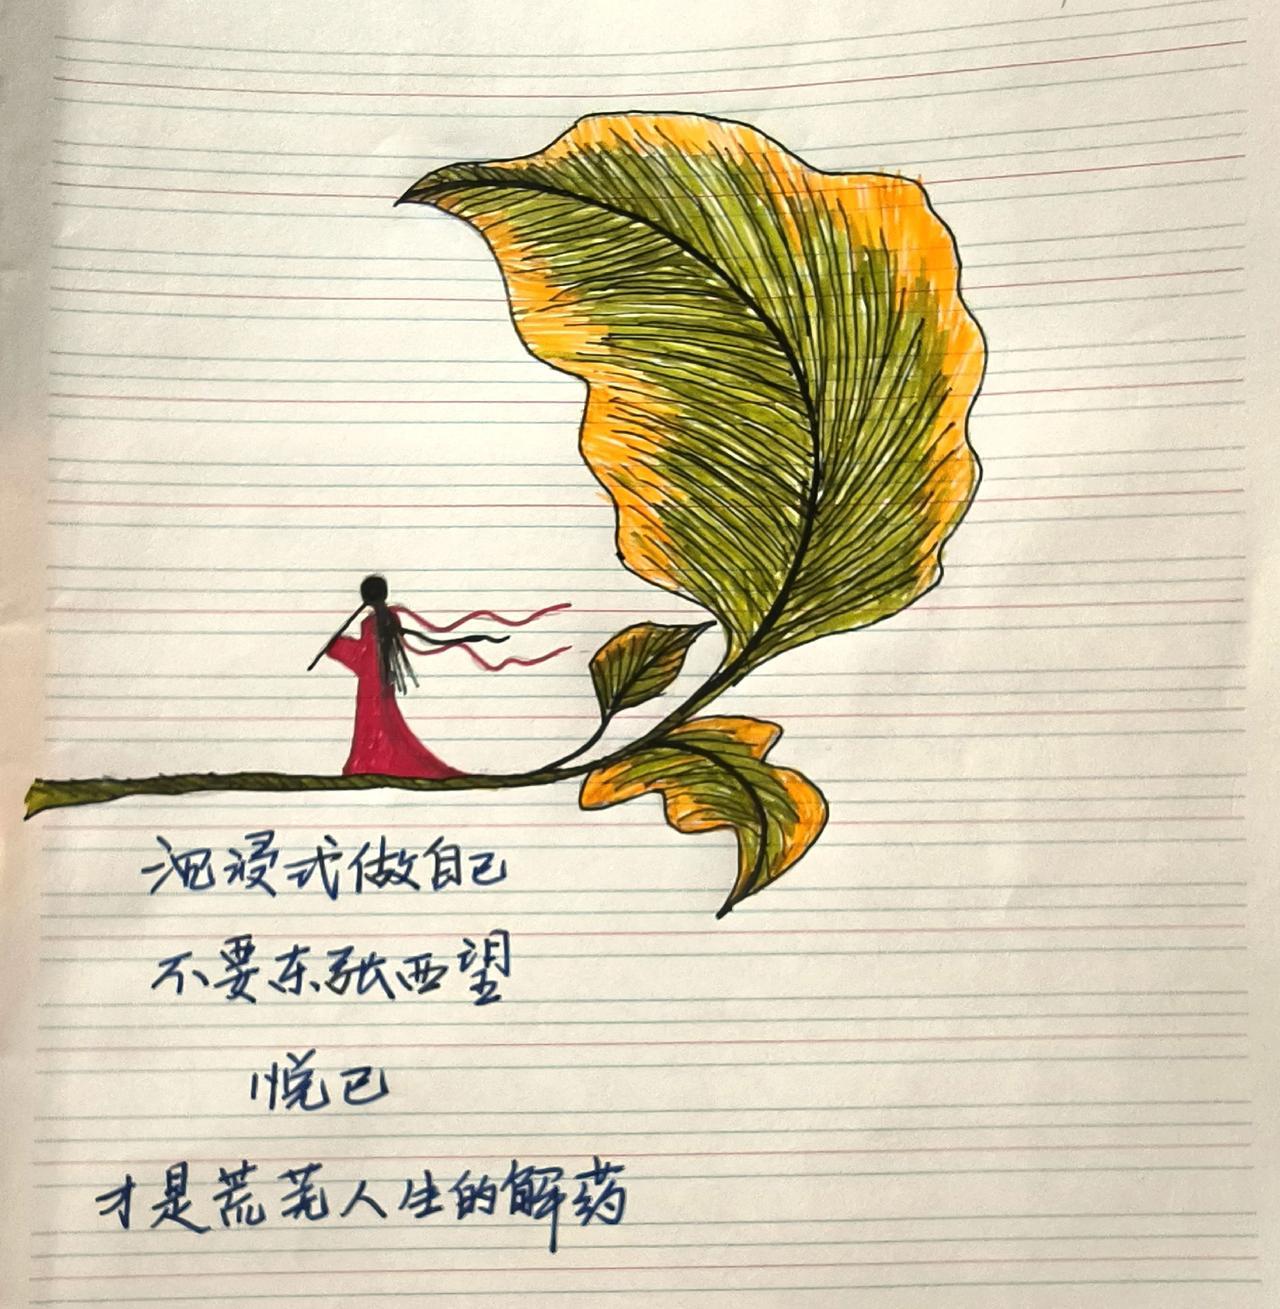 沉浸式做自己
不要东张西望
悦己
才是荒芜人生的解药